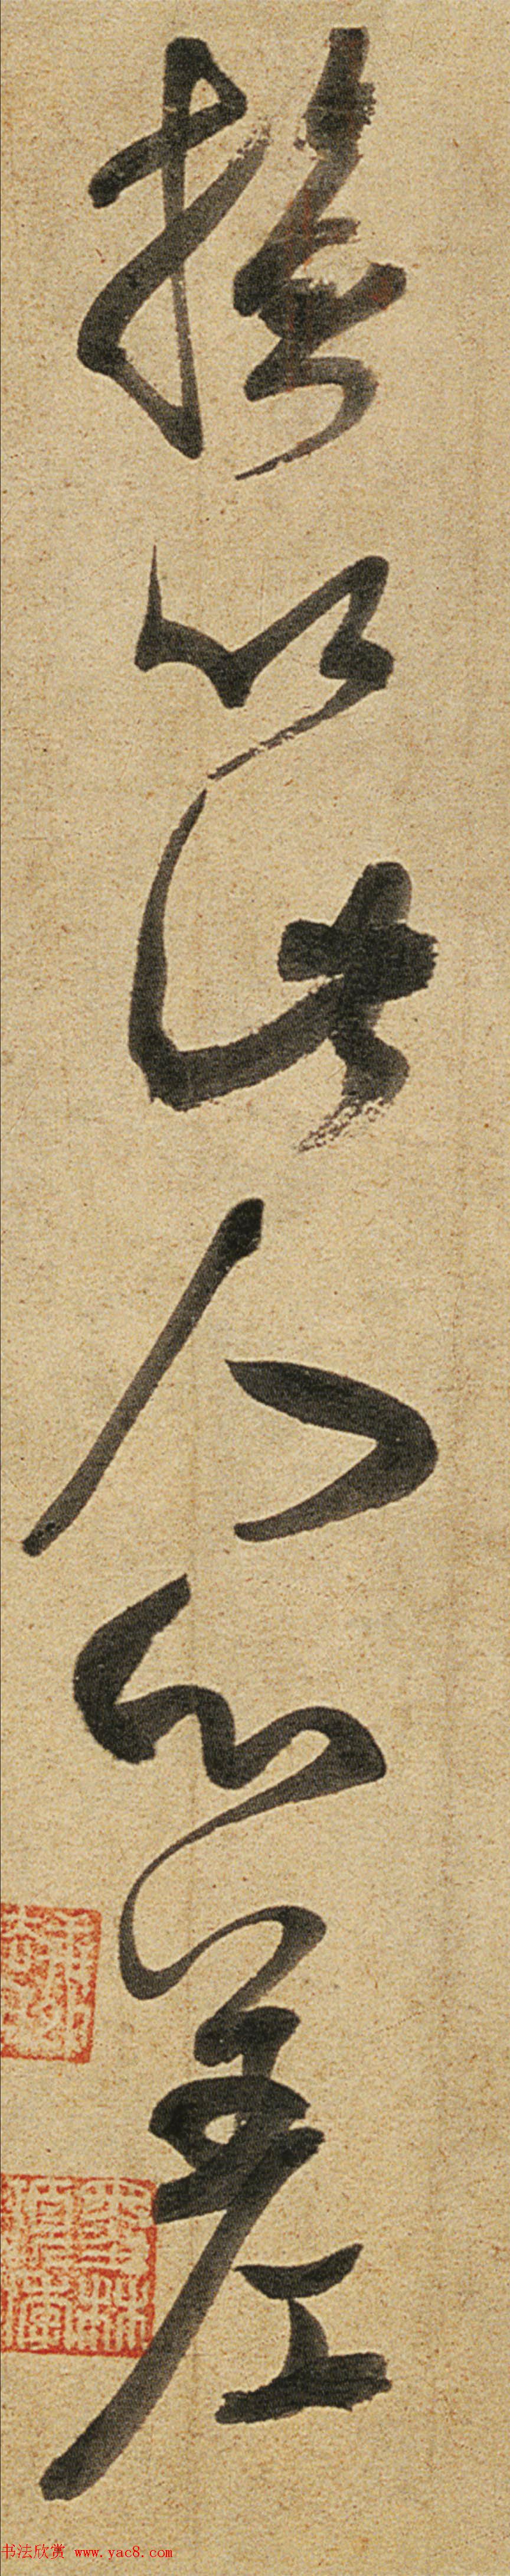 以此人心差
书法欣赏 www.yac8.com